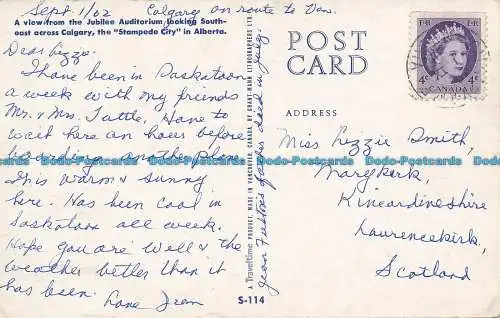 Sept 1/62 Calgary en route to Van.
A view from the Jubilee Auditorium looking South-
east across Calgary, the "Stampede City" in Alberta.
Dear Lizzie
I have been in Saskatoon
a week with my friends
Mr. & Mrs. Tuttle. Have to
wait here an hour before
boarding another plane
This warm & sunny
here. Has been cool in
Saskatoon all week.
Hope you are well & the
weather better than it
has been. Love
Jean father died in July.
A Traveltime PRODUCT, MADE IN VANCOUVER, CANADA, BY GRANT-MANN LITHOGRAPHERS LTD.
S-114
POST
CARD
ADDRESS
EIIR EIIR
4c 4c
CANADA
Miss Lizzie Smith,
Marykirk,
Kincardineshire
Laurencekirk,
Scotland
Dodo-Postcards Dodo-Postcards Dodo-Postcards Dodo-Postcards Dodo-Postcards